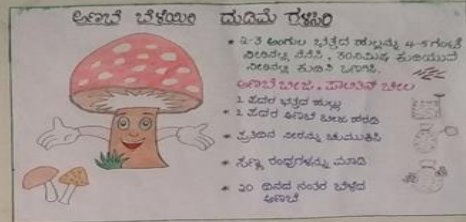 ಅಣಬೆ ಬೆಳೆಯಿರಿ ದುಡಿಮೆ ಗಳಿಸಿರಿ
* ೩-೩ ಅಂಗುಲ ಭತ್ತದ ಹುಲ್ಲನ್ನು 4-5 ಗಂಟೆ
ನೀರಿನಲ್ಲಿ ನೆನೆಸಿ, 30ನಿಮಿಷ ಕುದಿಯುವ
ನೀರಿನಲ್ಲಿ ಕುದಿಸಿ ಒಣಗಿಸಿ.
ಅಣಬೆ ಬೀಜ, ಪಾಲಿತಿನ್ ಚೀಲ
1 ಪದರ ಭತ್ತದ ಹುಲ್ಲು
* 2 ಪದರ ಅಣಬೆ ಬೀಜ ಹರಡಿ
* ಪ್ರತಿದಿನ ನೀರನ್ನು ಚುಮುಕಿಸಿ
* ಸಣ್ಣ ರಂಧ್ರಗಳನ್ನು ಮಾಡಿ
* ೩೦ ದಿನದ ನಂತರ ಬೆಳೆದ
ಅಣಬೆ